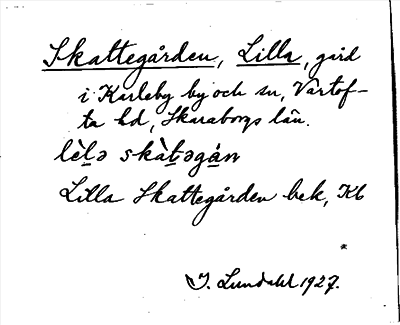 Skattegården, Lilla, gård
i Karleby by och sn, Vartof-
ta hd, Skaraborgs län.
lèlə skàtəgán
Lilla Skattegården bek, Kb
*
I. Lundahl 1927.